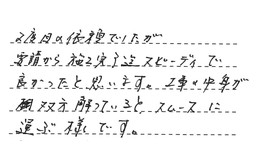 2度目の依頼でしたが
実績から施工完了迄スピーディで
良かったと思います。工事の中身が
双方解っているとスムースに
運ぶ様です。